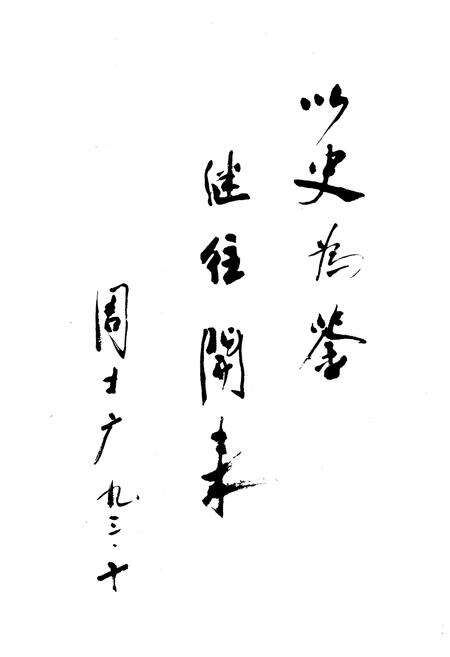 以史为鉴
继往開来
周士广 九三.十